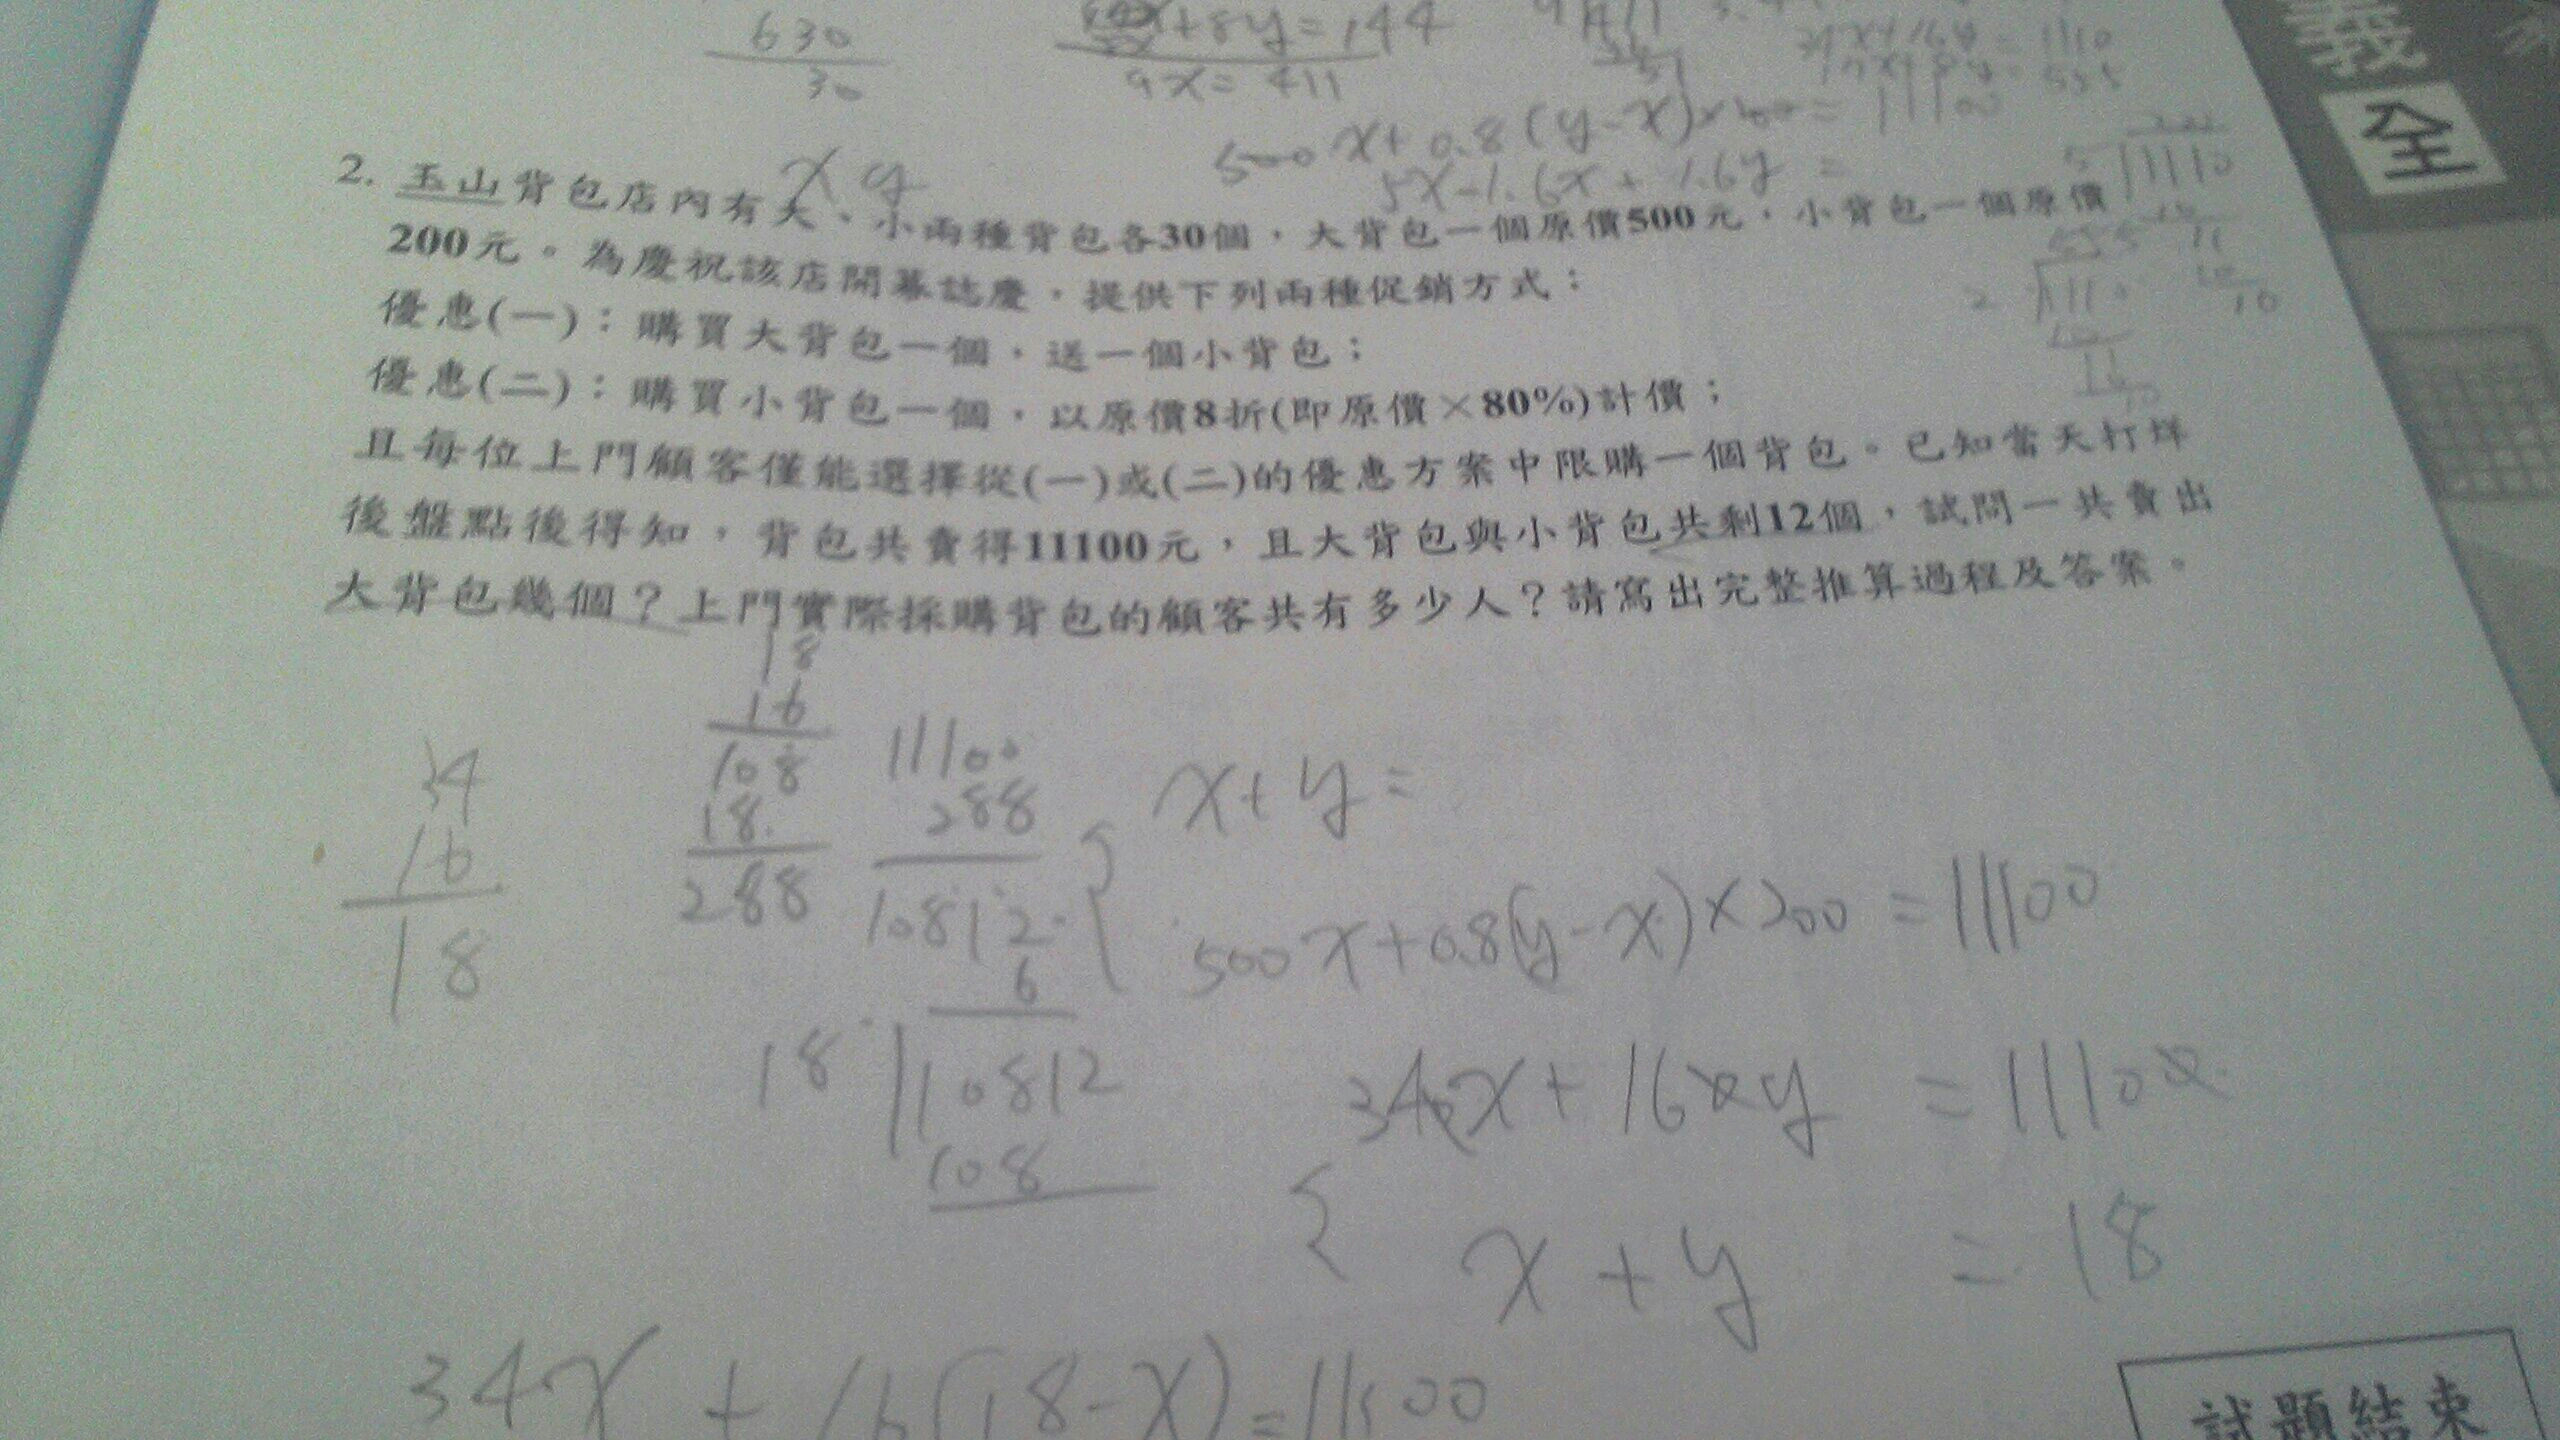 630
30
+8y=144
9x=411
500x+0.8(y-x)×200=11100
5x-1.6x+1.6y=
x y
2. 玉山背包店內有大、小兩種背包各30個，大背包一個原價500元，小背包一個原價
200元。為慶祝該店開幕誌慶，提供下列兩種促銷方式：
優惠(一)：購買大背包一個，送一個小背包；
優惠(二)：購買小背包一個，以原價8折(即原價×80%)計價；
且每位上門顧客僅能選擇從(一)或(二)的優惠方案中限購一個背包。已知當天打烊
後盤點後得知，背包共賣得11100元，且大背包與小背包共剩12個，試問一共賣出
大背包幾個？上門實際採購背包的顧客共有多少人？請寫出完整推算過程及答案。
34
16
18
18
16
108
18
288
11100
288
10812
6
18 10812
108
x+y=
500x+0.8(y-x)×200=11100
340x+160y=11100
x+y=18
34x+16(18-x)=11100
義
全
試題結束